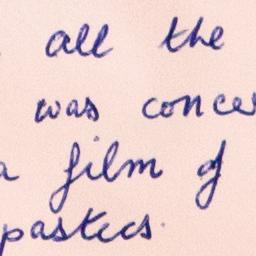 all the
was conce
a film of
pastics.